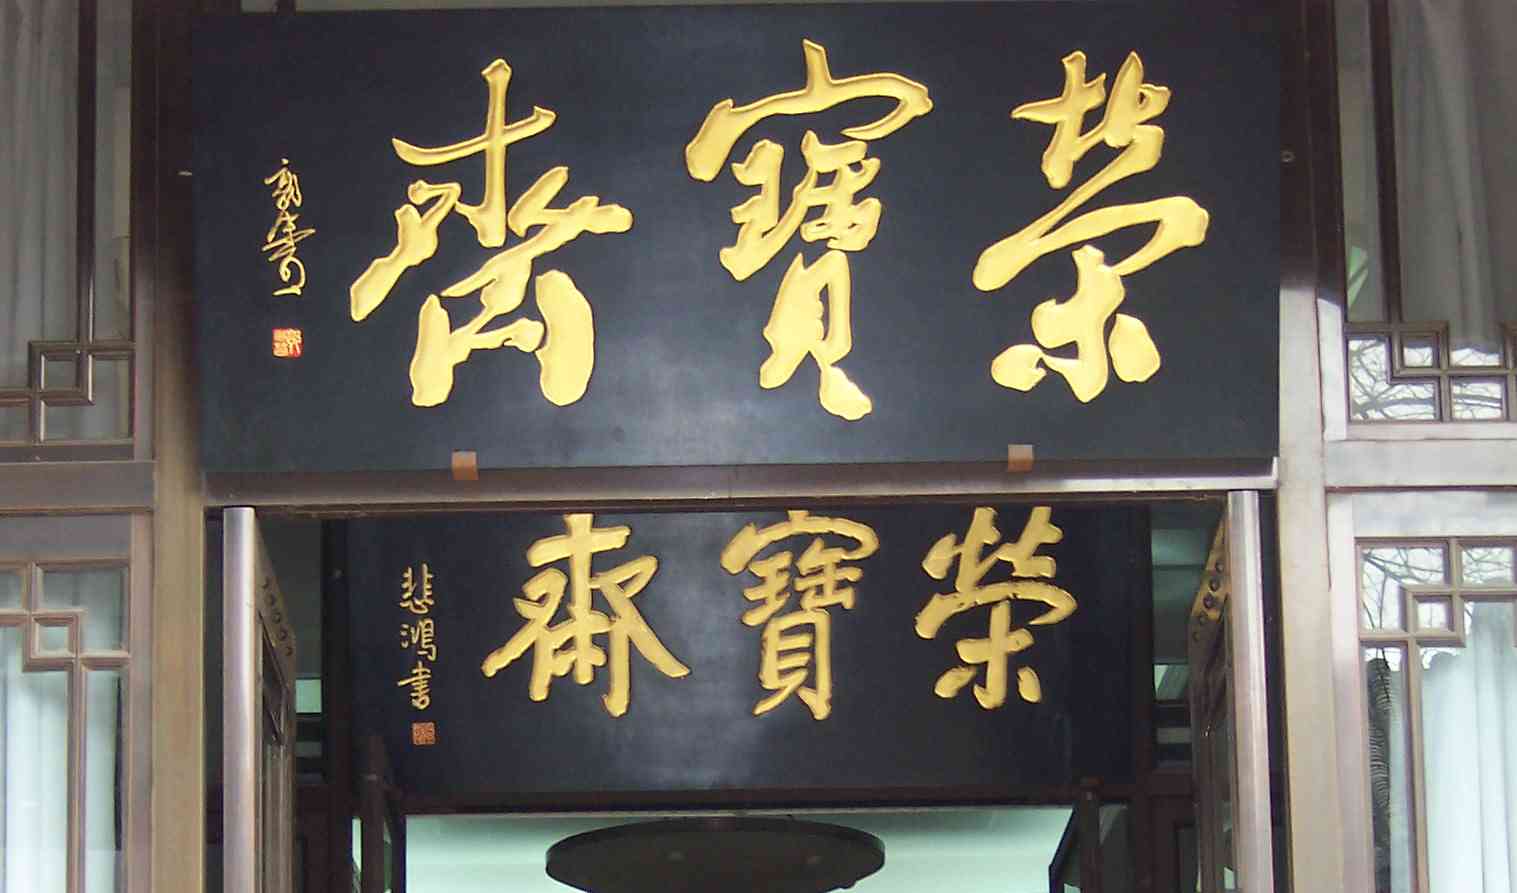 榮寶齋
郭沫若
榮寶齋
悲鴻書